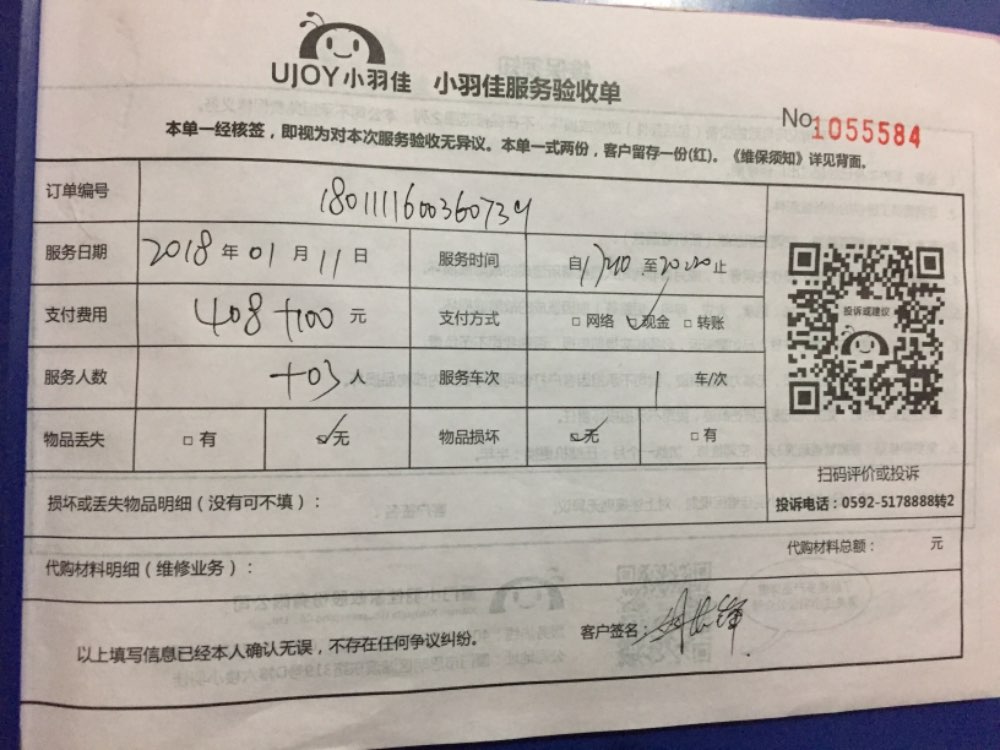 UJOY小羽佳 小羽佳服务验收单
No 1055584
本单一经核签，即视为对本次服务验收无异议。本单一式两份，客户留存一份(红)。《维保须知》详见背面。
订单编号 180111160036073
服务日期 2018 年 01 月 11 日 服务时间 自 至 止
支付费用 408+100 元 支付方式 □ 网络 ☑现金 □ 转账
服务人数 +03 人 服务车次 1 车/次
物品丢失 □ 有 ☑无 物品损坏 ☑无 □ 有
投诉或建议
扫码评价或投诉
投诉电话：0592-5178888转2
损坏或丢失物品明细（没有可不填）：
代购材料明细（维修业务）： 代购材料总额： 元
以上填写信息已经本人确认无误，不存在任何争议纠纷。 客户签名：